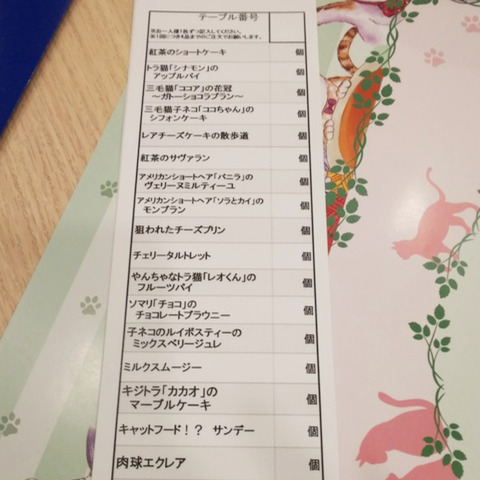 テーブル番号
※お一人様1枚ずつ記入してください。
※1回につき4品までのご注文でお願いします。
紅茶のショートケーキ 個
トラ猫「シナモン」の
アップルパイ 個
三毛猫「ココア」の花冠
～ガトーショコラブラン～ 個
三毛猫子ネコ「ココちゃん」の
シフォンケーキ 個
レアチーズケーキの散歩道 個
紅茶のサヴァラン 個
アメリカンショートヘア「バニラ」の
ヴェリーヌミルティーユ 個
アメリカンショートヘア「ソラとカイ」の
モンブラン 個
狙われたチーズプリン 個
チェリータルトレット 個
やんちゃなトラ猫「レオくん」の
フルーツパイ 個
ソマリ「チョコ」の
チョコレートブラウニー 個
子ネコのルイボスティーの
ミックスベリージュレ 個
ミルクスムージー 個
キジトラ「カカオ」の
マーブルケーキ 個
キャットフード！？ サンデー 個
肉球エクレア 個